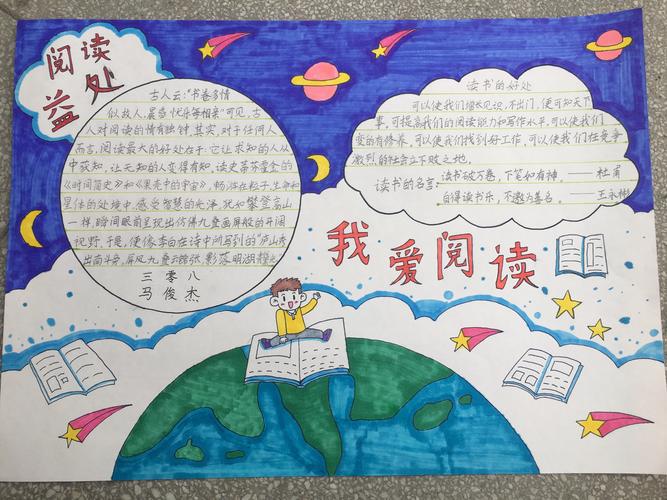 阅读
益处
古人云："书卷多情
似故人，晨昏忧乐每相亲"可见，古
人对阅读的情有独钟，其实，对于任何人
而言，阅读最大的好处在于：它让求知的人从
中获知，让无知的人变得有知，读史蒂芬霍金的
《时间简史》和《果壳中的宇宙》，畅游在粒子、生命和
星体的处境中，感受智慧的光泽，犹如攀登高山
一样，瞬间眼前呈现出仿佛九叠画屏般的开阔
视野，于是，便像李白在诗中所写到的"庐山秀
出南斗旁，屏风九叠云锦张，影落明湖
三零八
马俊杰
读书的好处
可以使我们增长见识，不出门，便可知天下
事，可提高我们的阅读能力和写作水平，可以使我们
变的有修养，可以使我们找到好工作，可以使我们在竞争
激烈的社会立于败之地。
读书的名言：读书破万卷，下笔如有神。——杜甫
自得读书乐，不邀为善名。——王永彬
我爱阅读